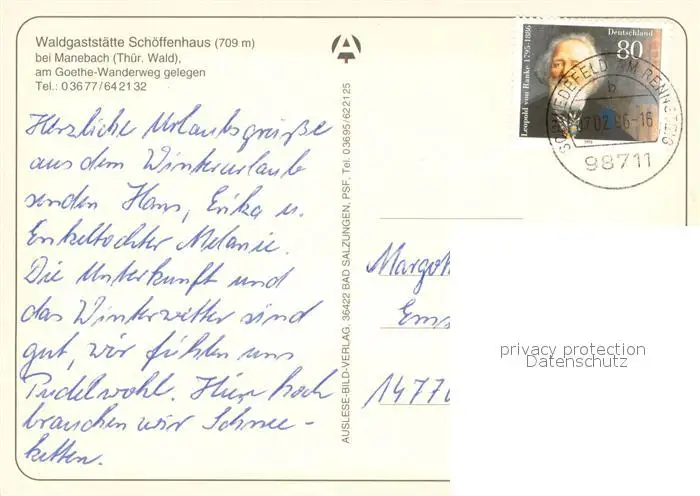 Waldgaststätte Schöffenhaus (709 m)
bei Manebach (Thür. Wald),
am Goethe-Wanderweg gelegen
Tel.: 0 36 77/64 21 32
Herzliche Urlaubsgrüße
aus dem Winterurlaub
senden Hans, Erika u.
Enkeltochter Melanie.
Die Unterkunft und
das Winterwetter sind
gut, wir fühlen uns
Pudelwohl. Hier hoch
brauchen wir Schnee-
ketten.
AUSLESE-BILD-VERLAG, 36422 BAD SALZUNGEN, PSF, Tel. 03695/622125
Deutschland
80
Leopold von Ranke 1795-1886
SCHMIEDEFELD AM RENNSTEIG
b
07.02.96-16
98711
Margot
Ems
14770
privacy protection
Datenschutz